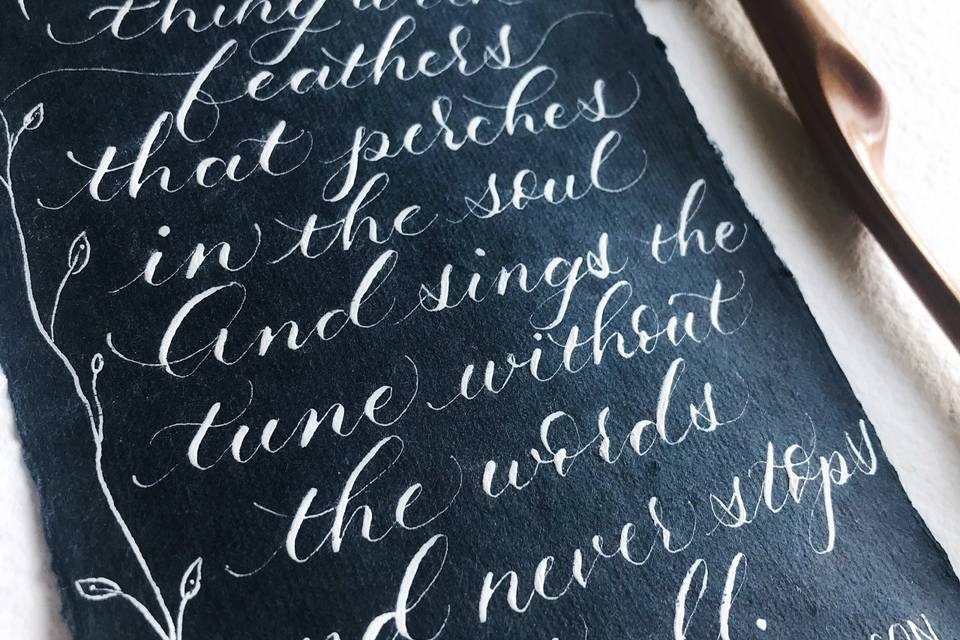 thing with
feathers
that perches
in the soul
And sings the
tune without
the words
and never stops